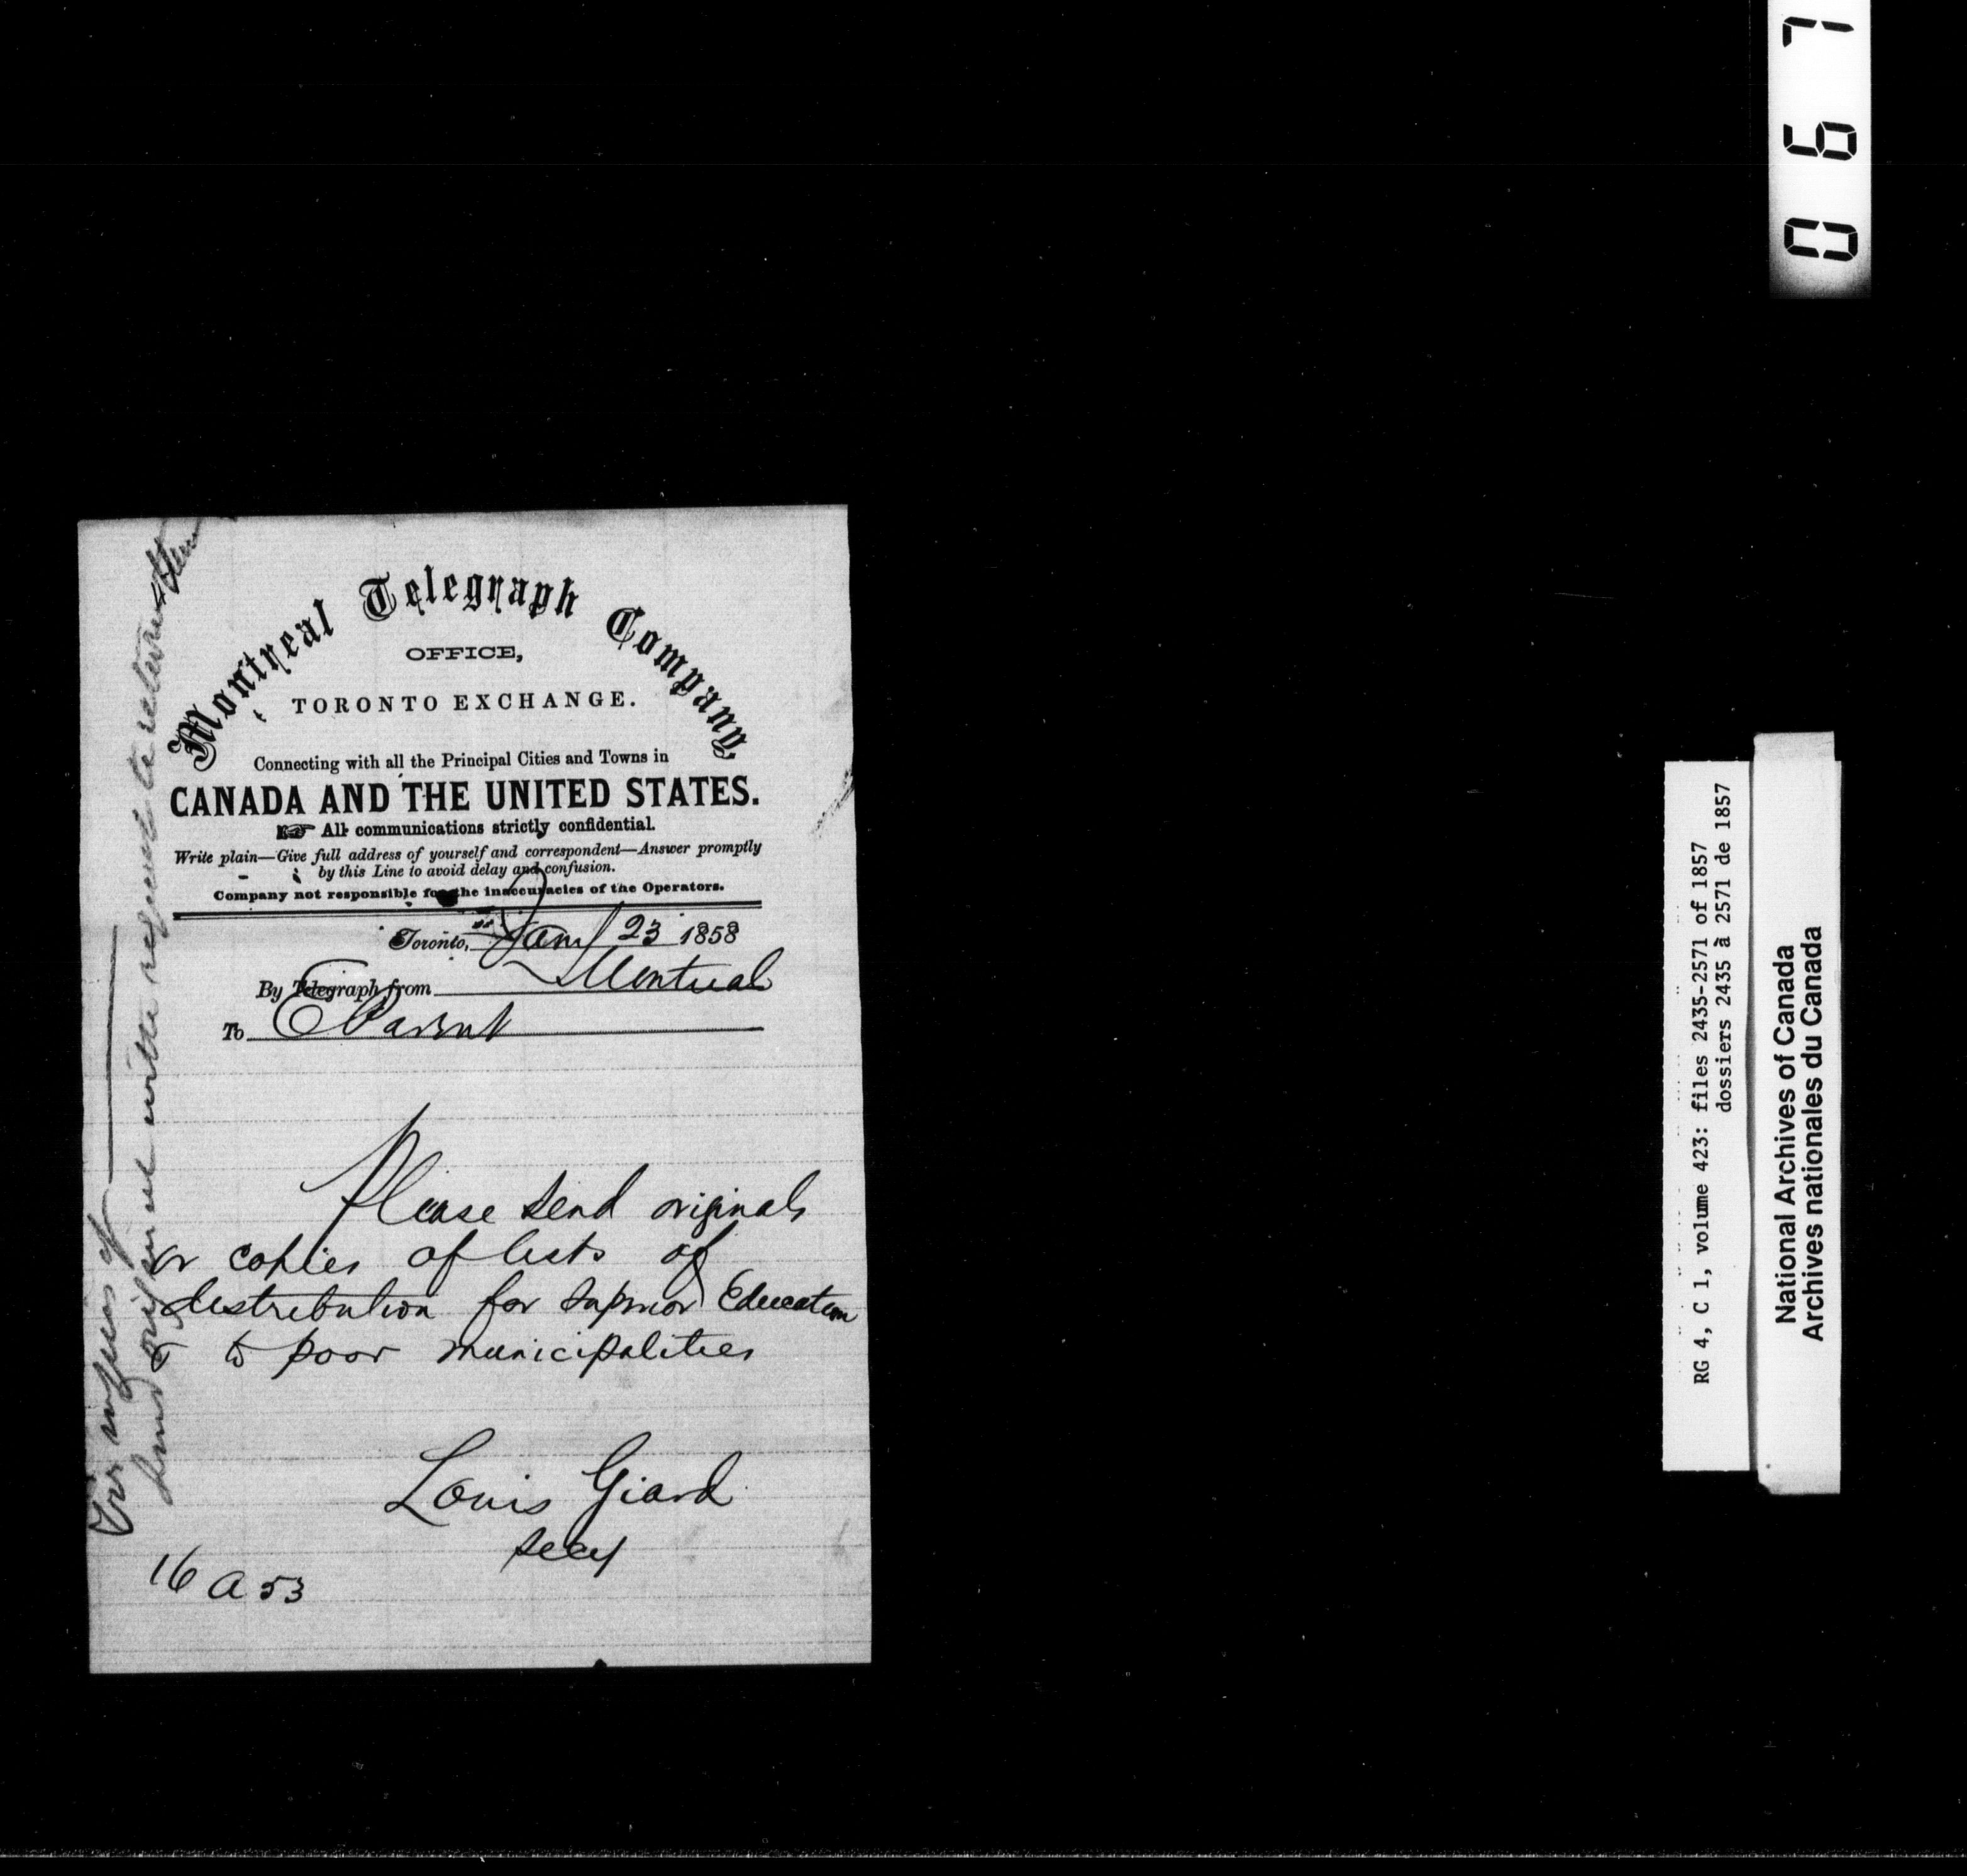 0 6 7
Montreal Telegraph Company
OFFICE,
TORONTO EXCHANGE.
Connecting with all the Principal Cities and Towns in
CANADA AND THE UNITED STATES.
☞ All communications strictly confidential.
Write plain—Give full address of yourself and correspondent—Answer promptly
by this Line to avoid delay and confusion.
Company not responsible for the inaccuracies of the Operators.
Toronto, Jany 23 1858
By Telegraph from Montreal
To E Parent
Please send originals
or copies of lists of
distribution for superior Education
& to poor municipalities
Louis Giard
secy
16 a 53
Send original with request to return them
RG 4, C 1, volume 423: files 2435-2571 of 1857
dossiers 2435 à 2571 de 1857
National Archives of Canada
Archives nationales du Canada